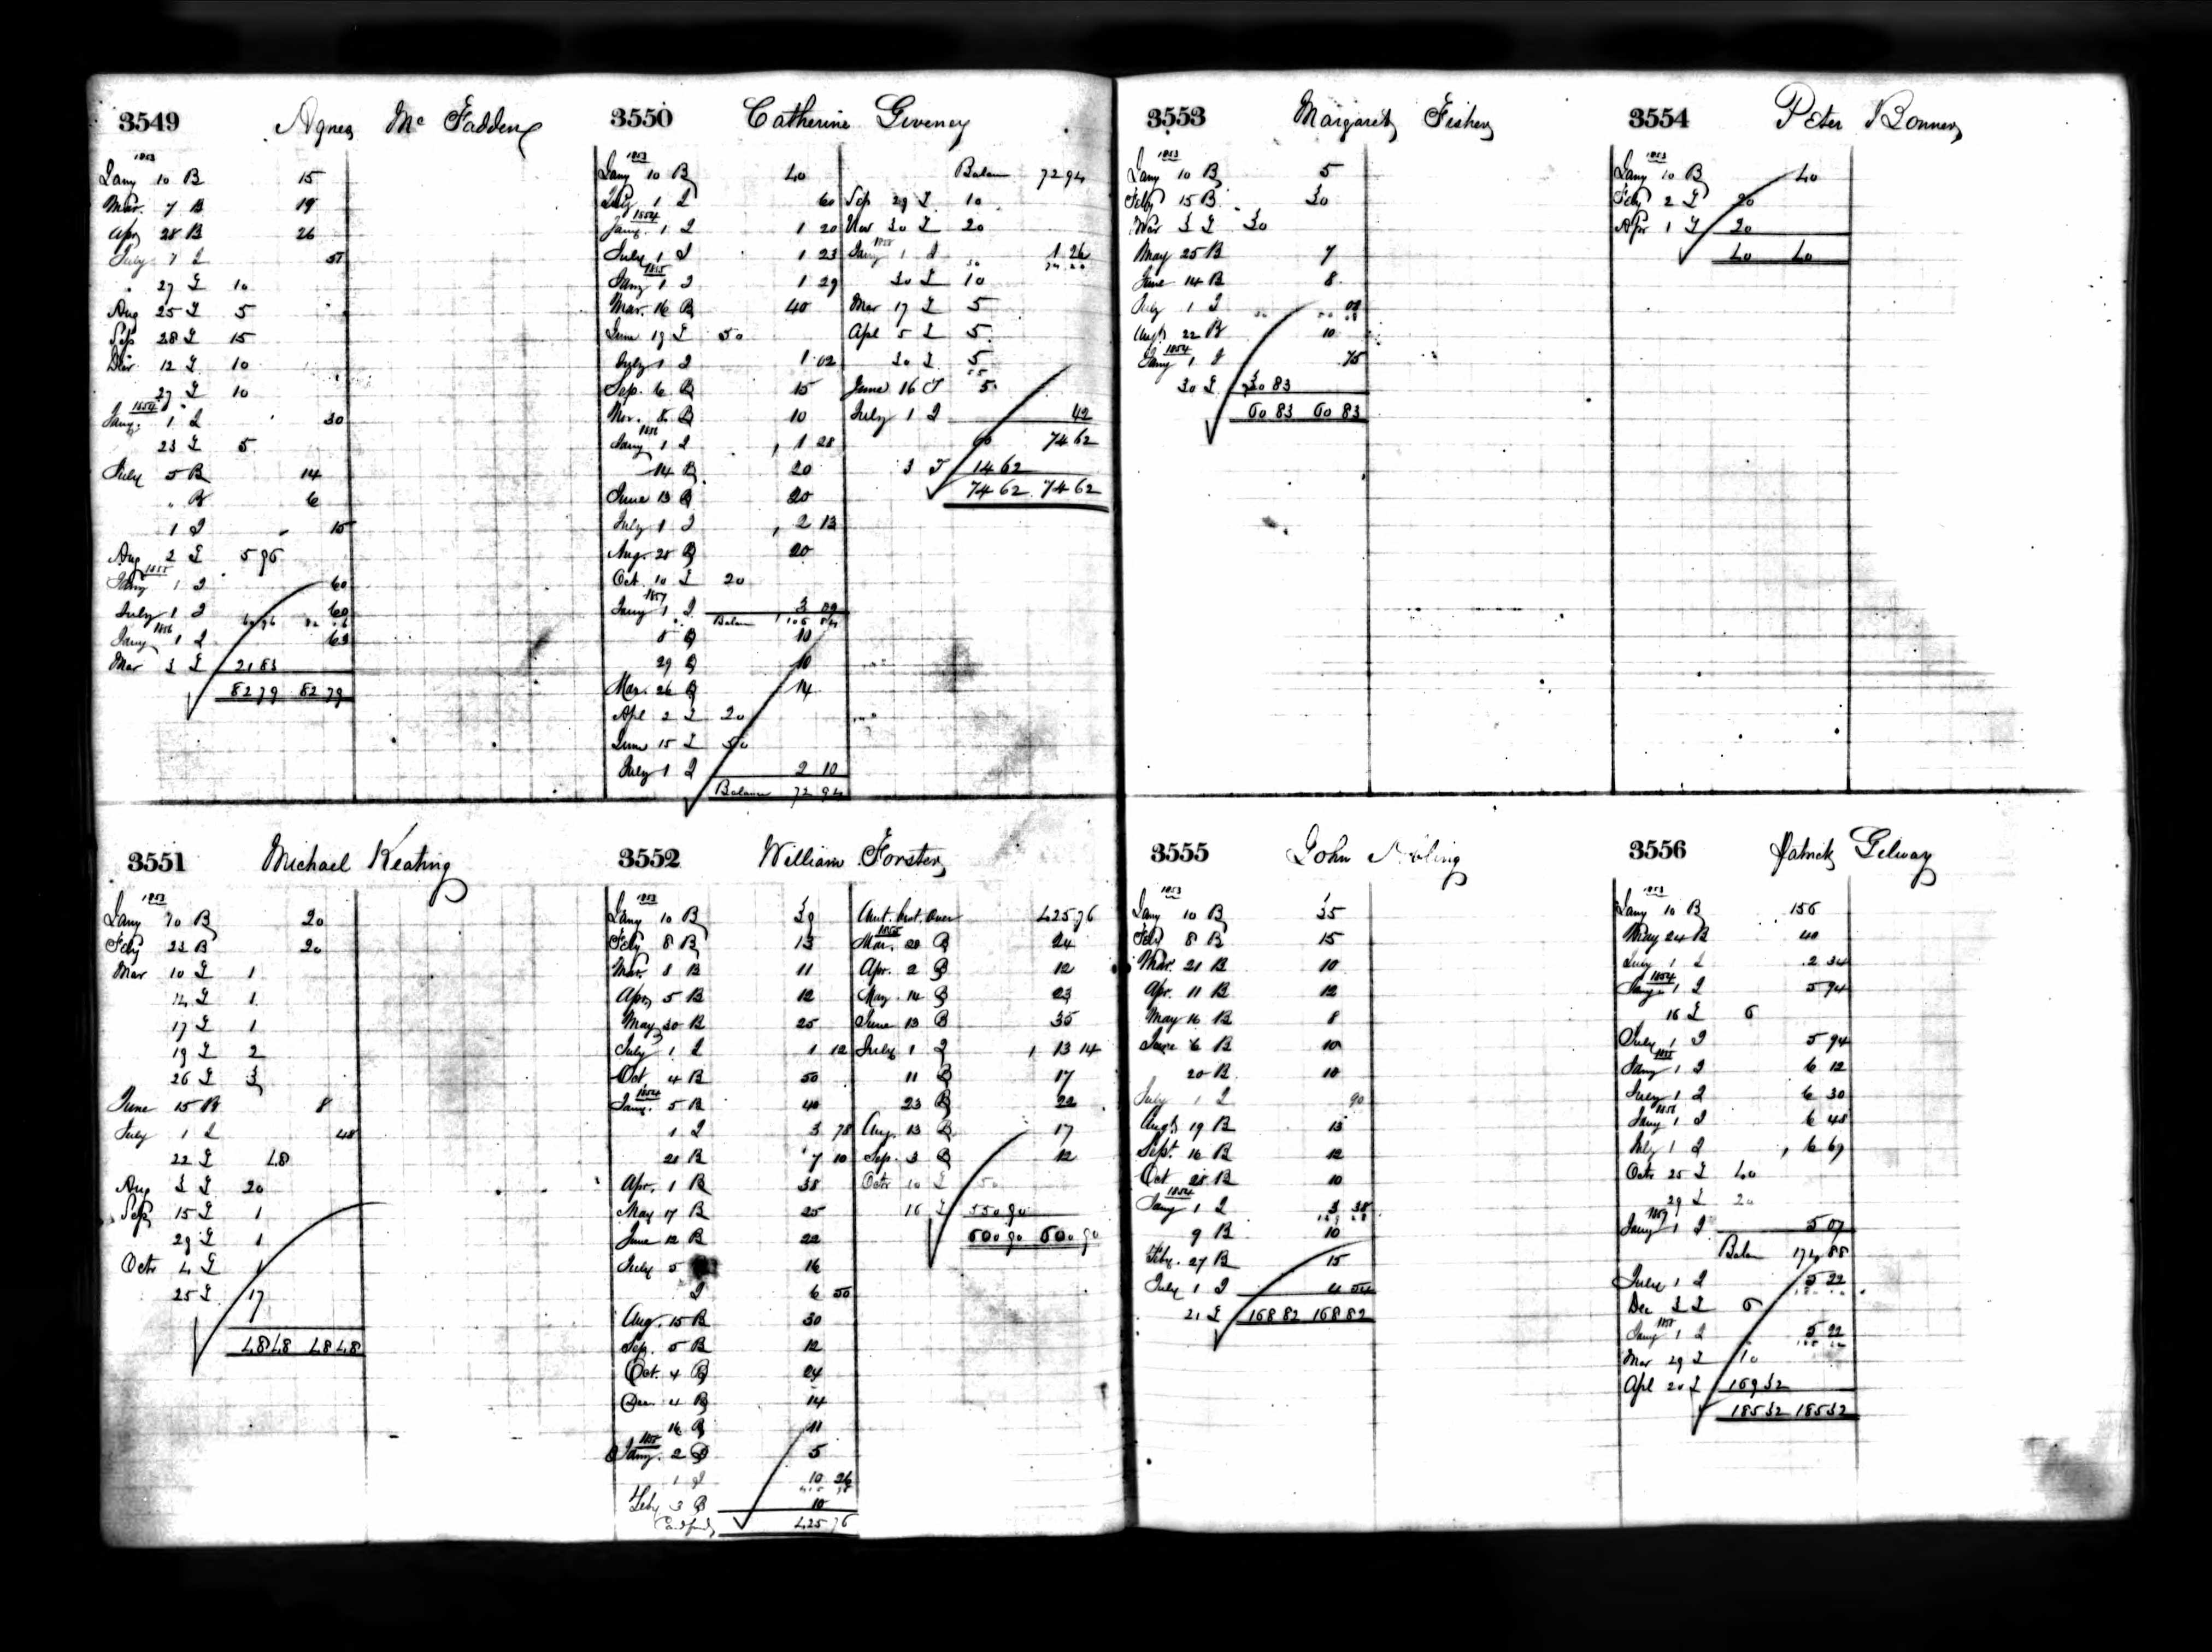 3549 Agnes Mc Fadden
1853
Jany 10 B 15
Mar. 7 B 19
Apr 28 B 26
July 1 I 51
27 T 10
Aug 25 T 5
Sep 28 T 15
12 T 10
27 T 10
1854
Jany. 1 I 30
23 T 5
July 5 B 14
" B 6
1 I 15
Aug 2 T 5 96
1855
Jany 1 I 60
July 1 I 60
1856
Jany 1 I 63
Mar 3 T 21 83
82 79 82 79
3550 Catherine Giveney
1853
Jany 10 B 40
July 1 I 60
1854
Jany. 1 I 1 20
July 1 I 1 23
1855
Jany 1 I 1 29
Mar. 16 B 40
June 19 T 50
July 1 I 1 02
Sep. 6 B 15
Nov. 8 B 10
1856
Jany 1 I 1 28
14 B 20
June 13 B 20
July 1 I 2 13
Aug. 28 B 20
Oct. 10 T 20
1857
Jany 1 I 3 09
8 B 10
29 B 10
Mar. 26 B 14
Apl 2 T 20
June 15 T 50
July 1 I 2 10
Balance 72 94
Balance 72 94
Sep 29 T 10
Nov 30 T 20
1858
Jany 1 I 1 26
30 T 10
Mar 17 T 5
Apl 5 T 5
30 T 5
June 16 T 5
July 1 I 42
60 74 62
3 T 14 62
74 62 74 62
3551 Michael Keating
1853
Jany 10 B 20
Feby 23 B 20
Mar 10 T 1
14 T 1
17 T 1
19 T 2
26 T 3
June 15 B 8
July 1 I 48
22 T 48
Aug 3 T 20
Sep 15 T 1
29 T 1
Octr 4 T 1
25 T 17
48 48 48 48
3552 William Forster
1853
Jany 10 B 39
Feby 8 B 13
Mar. 8 B 11
Apr 5 B 12
May 30 B 25
July 1 I 1 12
Oct 4 B 50
1854
Jany. 5 B 40
1 I 3 78
21 B 7 10
Apr. 1 B 38
May 17 B 25
June 12 B 22
July 5 16
I 6 50
Aug. 15 B 30
Sep. 5 B 12
Oct. 4 B 24
Dec. 4 B 14
16 B 11
1855
Jany. 2 B 5
1 I 10 26
Feby 3 B 10
425 76
Amt. brot. over 425 76
1855
Mar. 20 B 24
Apr. 2 B 12
May. 14 B 23
June 13 B 35
July 1 I 13 14
11 B 17
23 B 22
Aug. 13 B 17
Sep. 3 B 12
Octr 10 T 50
16 T 550 90
600 90 600 90
3553 Margaret Fisher
1853
Jany 10 B 5
Feby 15 B 30
Mar 3 T 30
May 25 B 7
June 14 B 8
July 1 I 08
Augt 22 B 10
1854
Jany 1 I 75
30 T 30 83
60 83 60 83
3554 Peter Bonner
1853
Jany 10 B 40
Feby 2 T 20
Apr 1 T 20
40 40
3555 John
1853
Jany 10 B 35
Feby 8 B 15
Mar. 21 B 10
Apr. 11 B 12
May 16 B 8
June 6 B 10
20 B 10
July 1 I 90
Augt 19 B 13
Sept. 16 B 12
Oct 28 B 10
1854
Jany 1 I 3 38
9 B 10
Feby. 27 B 15
July 1 I 4 54
21 T 168 82 168 82
3556 Patrick Gilway
1853
Jany 10 B 156
May 24 B 40
July 1 I 2 34
1854
Jany. 1 I 5 94
16 T 6
July 1 I 5 94
1855
Jany 1 I 6 12
July 1 I 6 30
1856
Jany 1 I 6 48
July 1 I 6 69
Octr 25 T 40
29 T 20
1857
Jany 1 I 5 07
Balan 174 88
July 1 I 5 22
Dec 3 T 6
1858
Jany 1 I 5 22
Mar 29 T 10
Apl 20 T 169 32
185 32 185 32